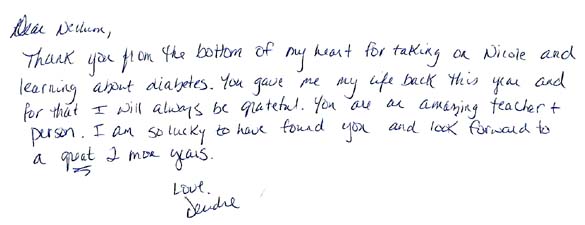 Dear Nechum,
Thank you from the bottom of my heart for taking on Nicole and
learning about diabetes. You gave me my life back this year and
for that I will always be grateful. You are an amazing teacher +
person. I am so lucky to have found you and look forward to
a great 2 more years.
Love,
Deirdre